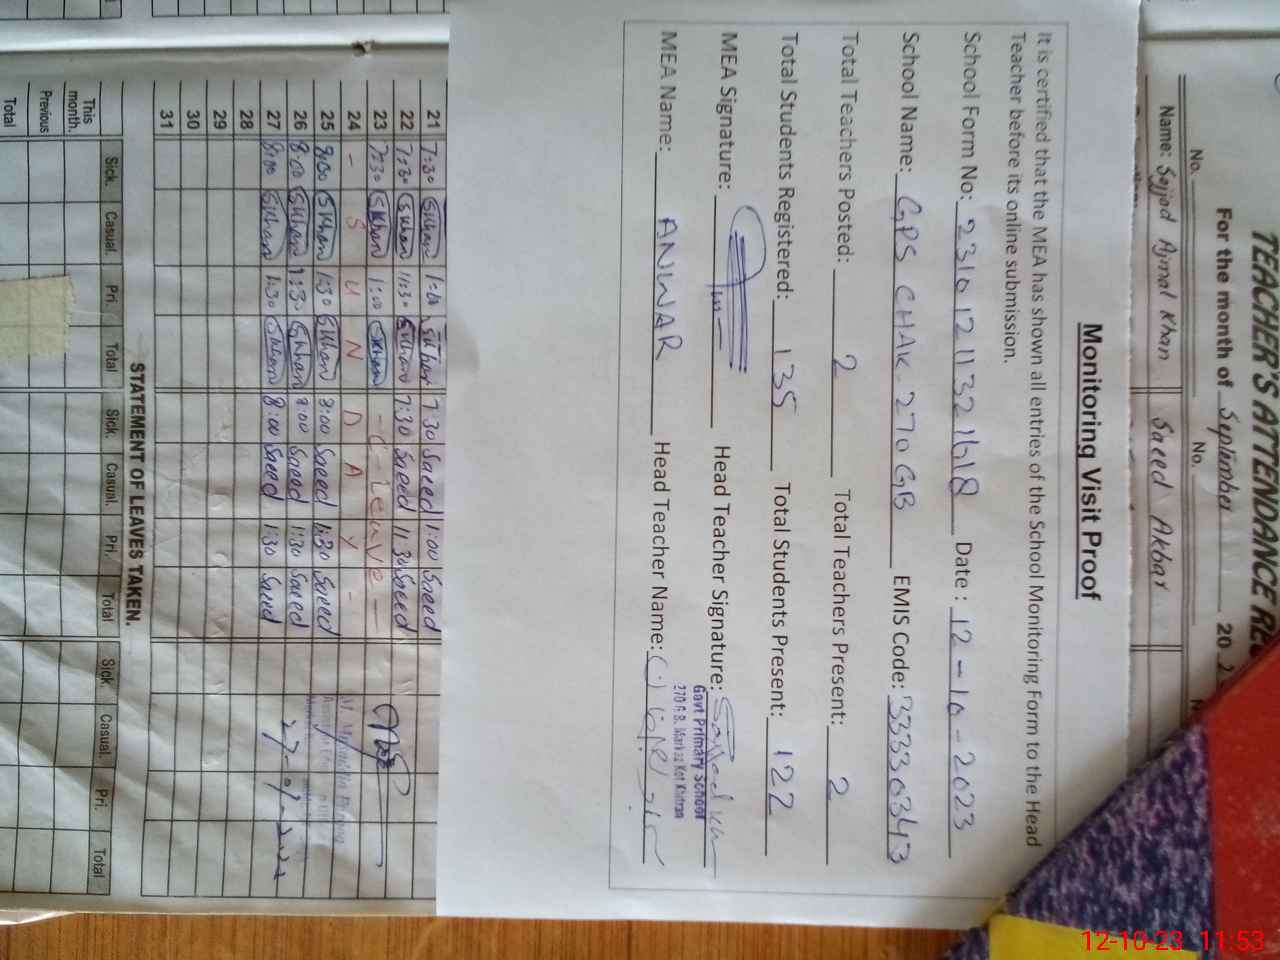 TEACHER'S ATTENDANCE RE
For the month of September 20
No. No. N
Name: Sajjad Ajmal Khan Saeed Akbar
Monitoring Visit Proof
It is certified that the MEA has shown all entries of the School Monitoring Form to the Head
Teacher before its online submission.
School Form No: Date : 12-10-2023
School Name: GPS CHAK-270GB EMIS Code: 33330343
Total Teachers Posted: 2 Total Teachers Present: 2
Total Students Registered: 135 Total Students Present: 122
MEA Signature: Head Teacher Signature:
Govt Primary School
270 G.B.
MEA Name: ANWAR Head Teacher Name:
21 7:30 7:30 Saeed 1:00 Saeed
22 7:30 SKhan 11:30 SKhan 7:30 Saeed 11:30 Saeed
23 7:30 SKhan 1:00 SKhan -C-Leave-
24 - S U N D A Y -
25 8:00 SKhan 1:30 SKhan 8:00 Saeed 1:30 Saeed
26 8:00 SKhan 1:30 SKhan 8:00 Saeed 1:30 Saeed
27 8:00 SKhan 1:30 SKhan 8:00 Saeed 1:30 Saeed
28
29
30
31
STATEMENT OF LEAVES TAKEN.
Sick. Casual. Pri. Total Sick. Casual. Pri. Total Sick. Casual. Pri. Total
This month.
Previous
Total
12-10-23 11:53